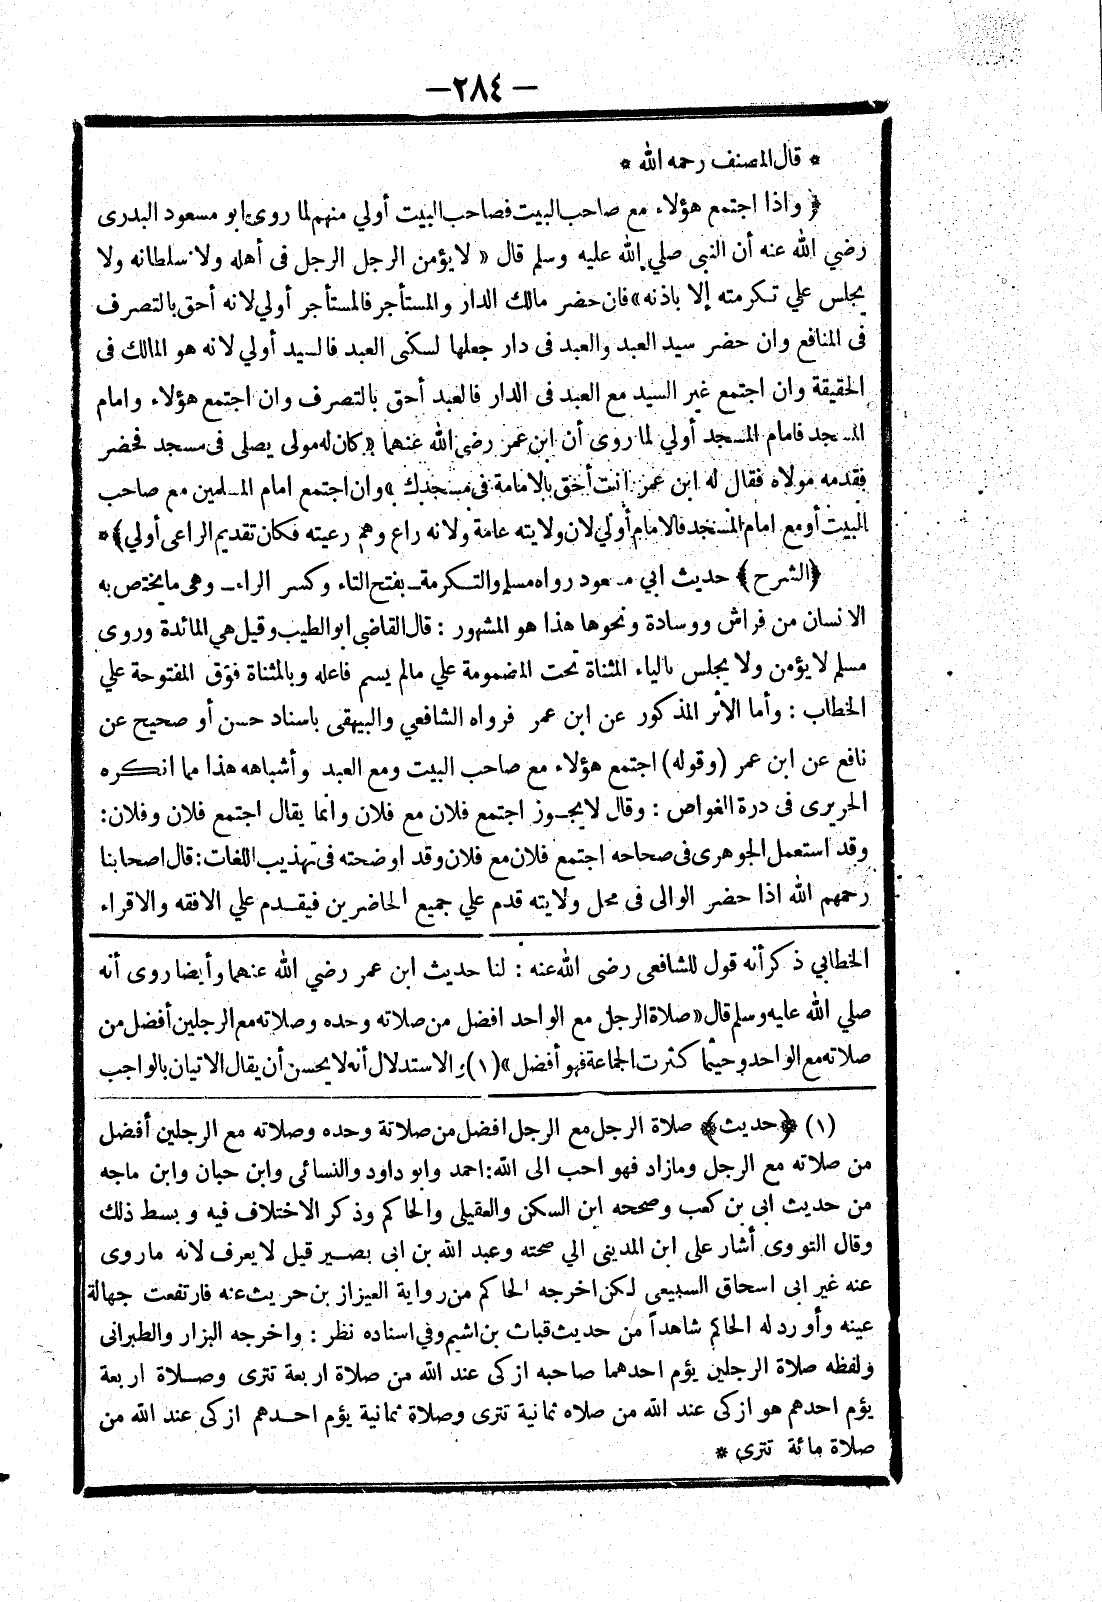 —٢٨٤—
* قال المصنف رحمه الله *
﴿ واذا اجتمع هؤلاء مع صاحب البيت فصاحب البيت أولي منهم لما روى ابو مسعود البدرى
رضي الله عنه أن النبى صلي الله عليه وسلم قال « لا يؤمن الرجل الرجل فى أهله ولا سلطانه ولا
يجلس علي تكرمته إلا باذنه » فان حضر مالك الدار والمستأجر فالمستأجر أولي لانه أحق بالتصرف
فى المنافع وان حضر سيد العبد والعبد فى دار جعلها لسكنى العبد فالسيد أولي لانه هو المالك فى
الحقيقة وان اجتمع غير السيد مع العبد فى الدار فالعبد أحق بالتصرف وان اجتمع هؤلاء وامام
المسجد فامام المسجد أولي لما روى أن ابن عمر رضى الله عنهما « كان له مولى يصلى فى مسجد فحضر
فقدمه مولاه فقال له ابن عمر انت أحق بالامامة فى مسجدك » وان اجتمع امام المسلمين مع صاحب
البيت أو مع امام المسجد فالامام أولي لان ولايته عامة ولانه راع وهم رعيته فكان تقديم الراعى أولي ﴾ *
﴿ الشرح ﴾ حديث ابي مسعود رواه مسلم والتكرمة ـ بفتح التاء وكسر الراء ـ وهى ما يختص به
الانسان من فراش ووسادة ونحوها هذا هو المشهور : قال القاضى ابو الطيب وقيل هي المائدة وروى
مسلم لا يؤمن ولا يجلس بالياء المثناة تحت المضمومة علي مالم يسم فاعله وبالمثناة فوق المفتوحة علي
الخطاب : وأما الأثر المذكور عن ابن عمر فرواه الشافعي والبيهقى باسناد حسن أو صحيح عن
نافع عن ابن عمر (وقوله) اجتمع هؤلاء مع صاحب البيت ومع العبد وأشباهه هذا مما انكره
الحريرى فى درة الغواص : وقال لا يجوز اجتمع فلان مع فلان وانما يقال اجتمع فلان وفلان:
وقد استعمل الجوهرى فى صحاحه اجتمع فلان مع فلان وقد اوضحته فى تهذيب اللغات : قال اصحابنا
رحمهم الله اذا حضر الوالى فى محل ولايته قدم علي جميع الحاضرين فيقدم علي الافقه والاقراء
الخطابي ذكر أنه قول للشافعى رضى الله عنه : لنا حديث ابن عمر رضي الله عنهما وأيضا روى أنه
صلي الله عليه وسلم قال « صلاة الرجل مع الواحد افضل من صلاته وحده وصلاته مع الرجلين أفضل من
صلاته مع الواحد وحيثما كثرت الجماعة فهو أفضل » (١) والاستدلال أنه لا يحسن أن يقال الاتيان بالواجب
(١) ﴿حديث﴾ صلاة الرجل مع الرجل افضل من صلاتة وحده وصلاته مع الرجلين أفضل
من صلاته مع الرجل ومازاد فهو احب الى الله: احمد وابو داود والنسائى وابن حبان وابن ماجه
من حديث ابى بن كعب وصححه ابن السكن والعقيلى والحاكم وذكر الاختلاف فيه وبسط ذلك
وقال النووى أشار على ابن المدينى الي صحته وعبد الله بن ابى بصير قيل لا يعرف لانه ما روى
عنه غير ابى اسحاق السبيعى لكن اخرجه الحاكم من رواية العيزاز بن حريث عنه فارتفعت جهالة
عينه وأورد له الحاكم شاهداً من حديث قباث بن اشيم وفي اسناده نظر : واخرجه البزار والطبرانى
ولفظه صلاة الرجلين يؤم احدهما صاحبه ازكى عند الله من صلاة اربعة تترى وصلاة اربعة
يؤم احدهم هو ازكى عند الله من صلاه ثمانية تترى وصلاة ثمانية يؤم احدهم ازكى عند الله من
صلاة مائة تترى *